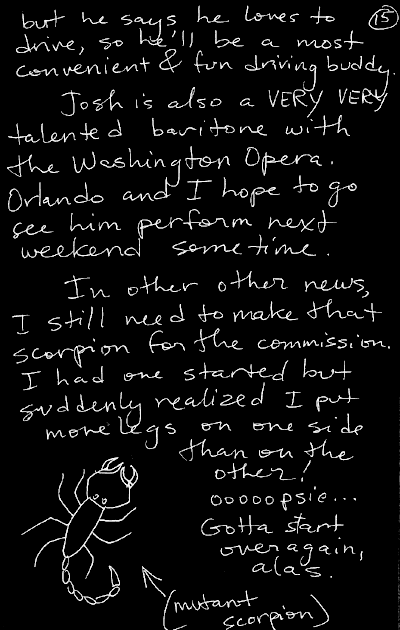 but he says he loves to 15
drive, so he'll be a most
convenient & fun driving buddy.
Josh is also a VERY VERY
talented baritone with
the Washington Opera.
Orlando and I hope to go
see him perform next
weekend sometime.
In other other news,
I still need to make that
scorpion for the commission.
I had one started but
suddenly realized I put
more legs on one side
than on the
other!
ooooopsie...
Gotta start
over again,
alas.
(mutant
scorpion)